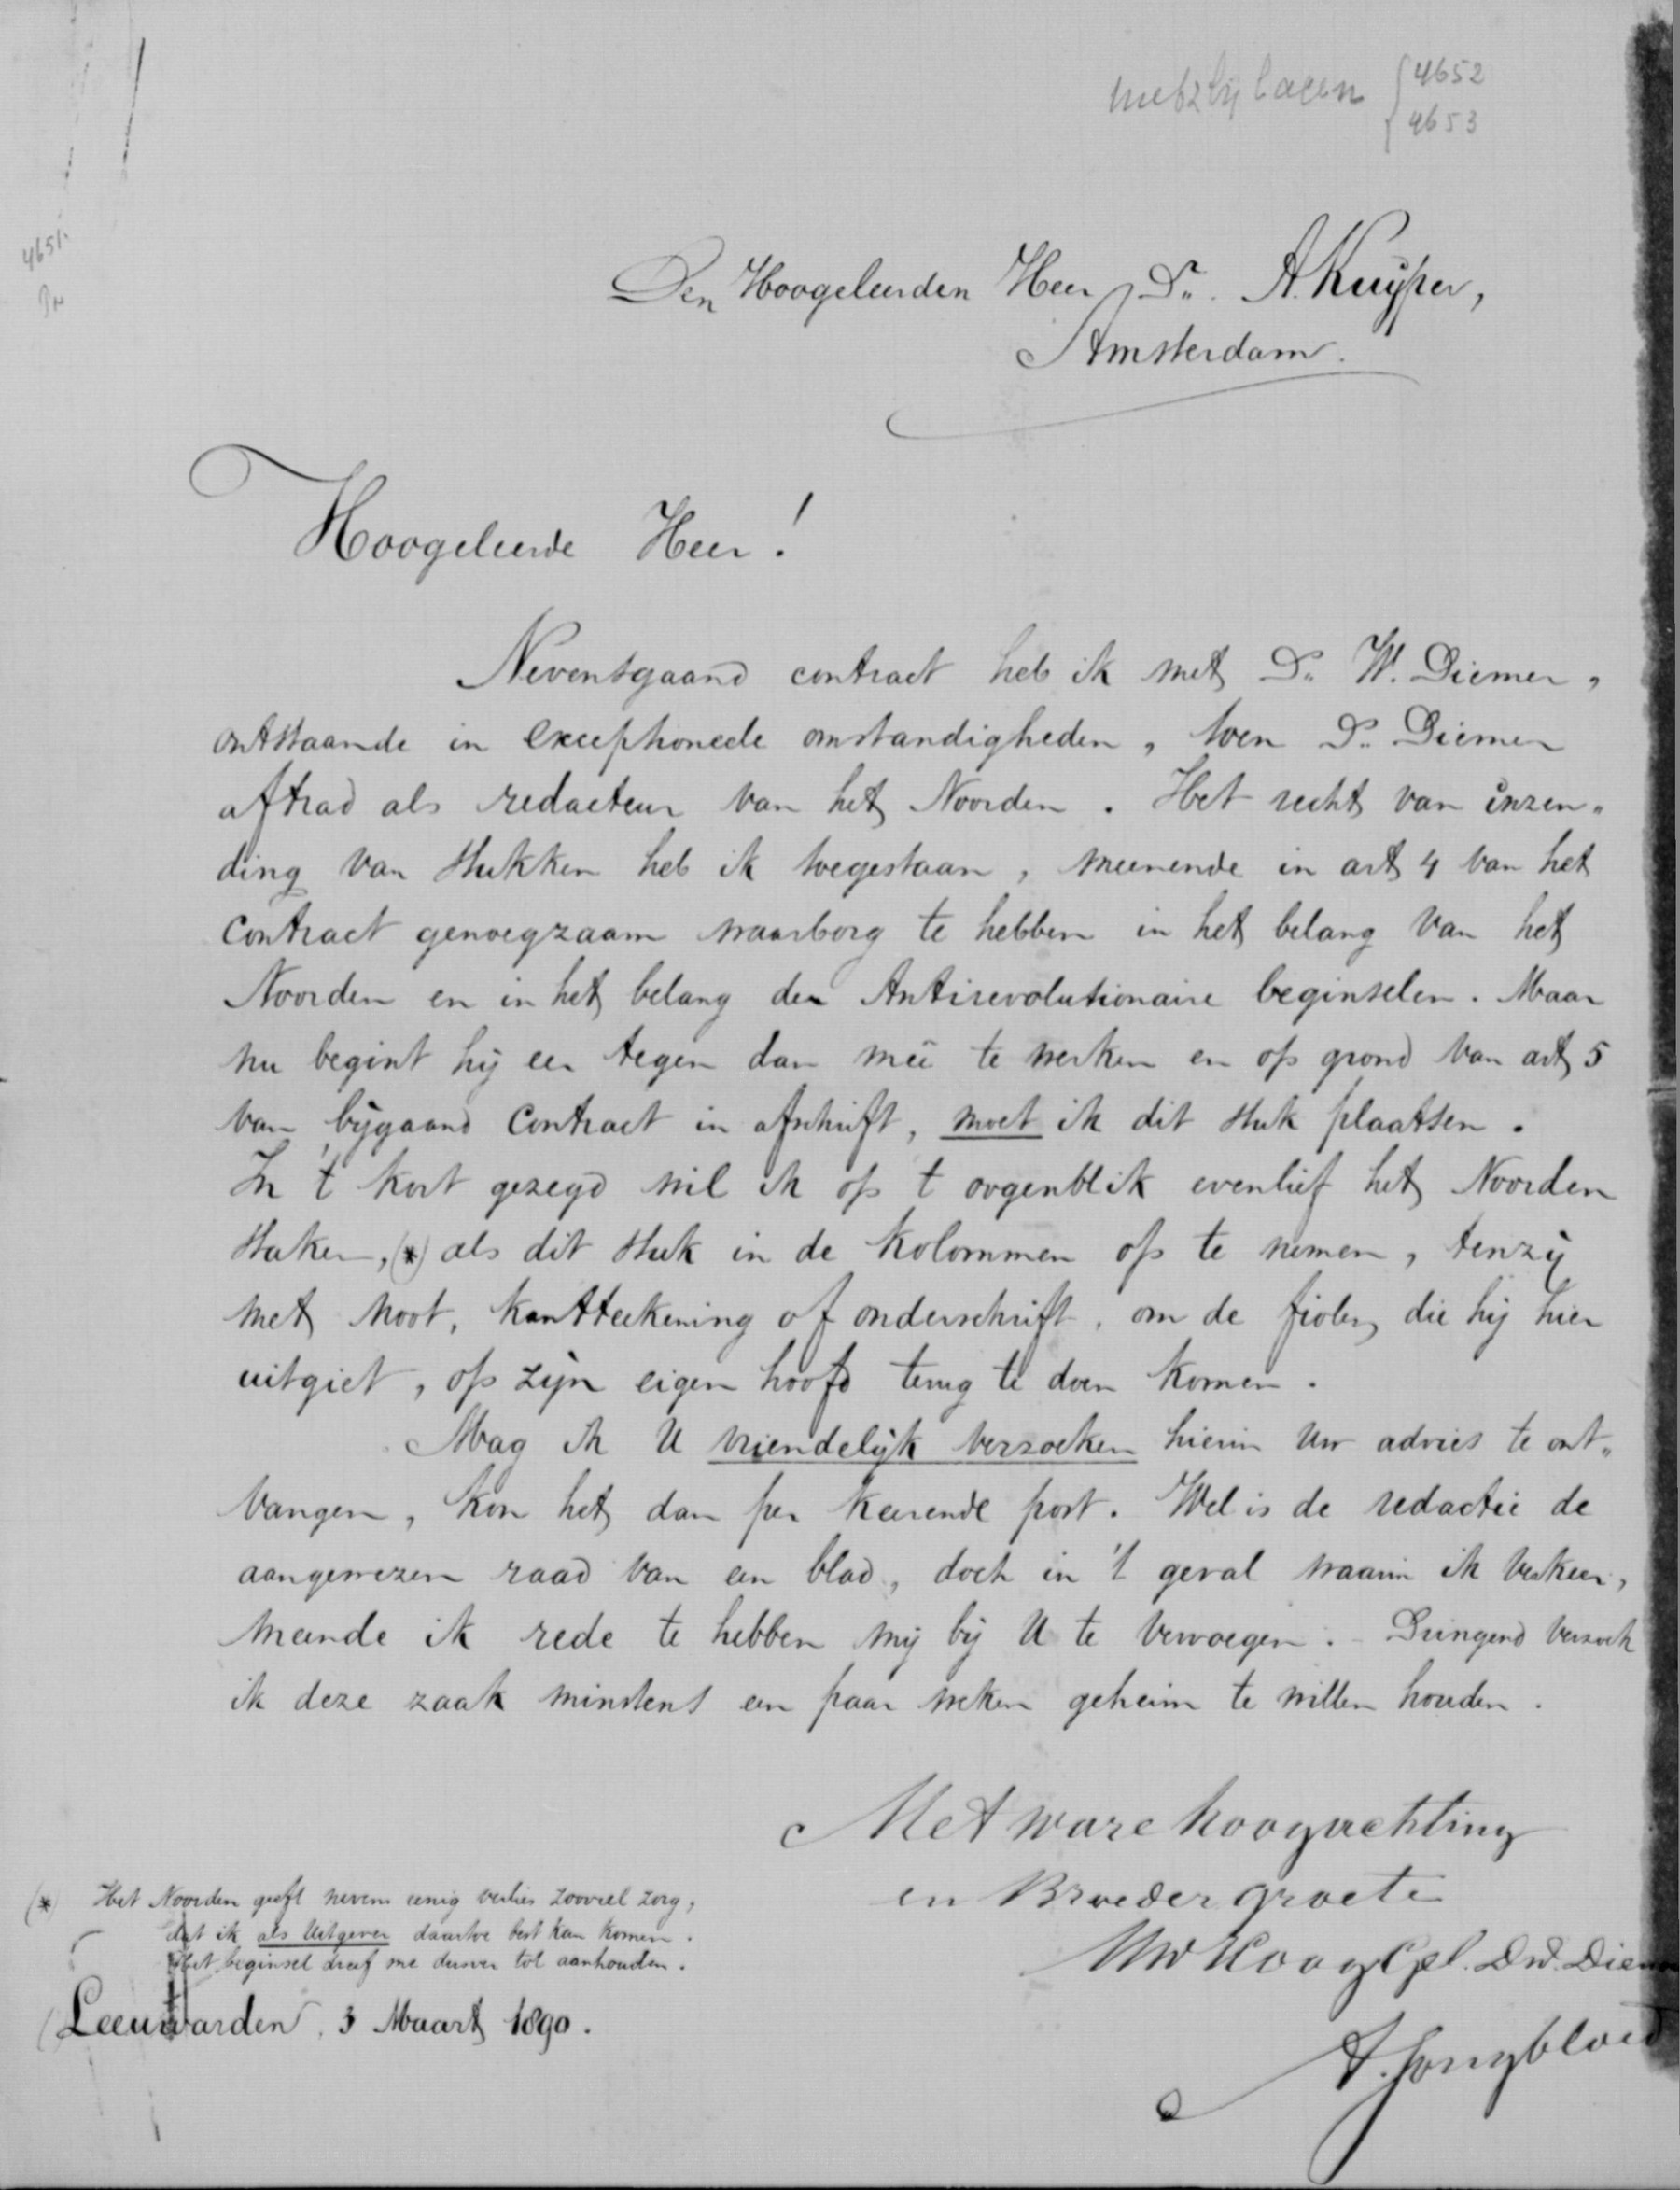 met 2 bijlagen { 4652
4653
4651.
Den Hoogeleerden Heer Dr. A. Kuyper,
Amsterdam.
Hoogeleerde Heer!
Nevensgaand contract heb ik met Dr. W. Diemer,
ontstaande in exceptioneele omstandigheden, toen Dr. Diemer
aftrad als redacteur van het Noorden. Het recht van inzen„
ding van stukken heb ik toegestaan, meenende in art 4 van het
contract genoegzaam waarborg te hebben in het belang van het
Noorden en in het belang der Antirevolutionaire beginselen. Maar
nu begint hij eer tegen dan meê te werken en op grond van art 5
van bijgaand contract in afschrift, moet ik dit stuk plaatsen.
In 't kort gezegd wil ik op t oogenblik evenlief het Noorden
staken, (*) als dit stuk in de kolommen op te nemen, tenzij
met noot, kantteekening of onderschrift, om de fiolen die hij hier
uitgiet, op zijn eigen hoofd terug te doen komen.
Mag ik U vriendelijk verzoeken hierin Uw advies te ont„
vangen, kon het dan per keerende post. Wel is de redactie de
aangewezen raad van een blad, doch in 't geval waarin ik verkeer,
meende ik rede te hebben mij bij U te vervoegen. - Dringend verzoek
ik deze zaak minstens een paar weken geheim te willen houden.
Met ware hoogachting
en Broedergroete
Uw HoogGel. Dw. Dien
A. Jongbloed
(*) Het Noorden geeft nevens eenig verlies zooveel zorg,
dat ik als Uitgever daartoe best kan komen.
Het beginsel dreef me dusver tot aanhouden.
Leeuwarden, 3 Maart 1890.